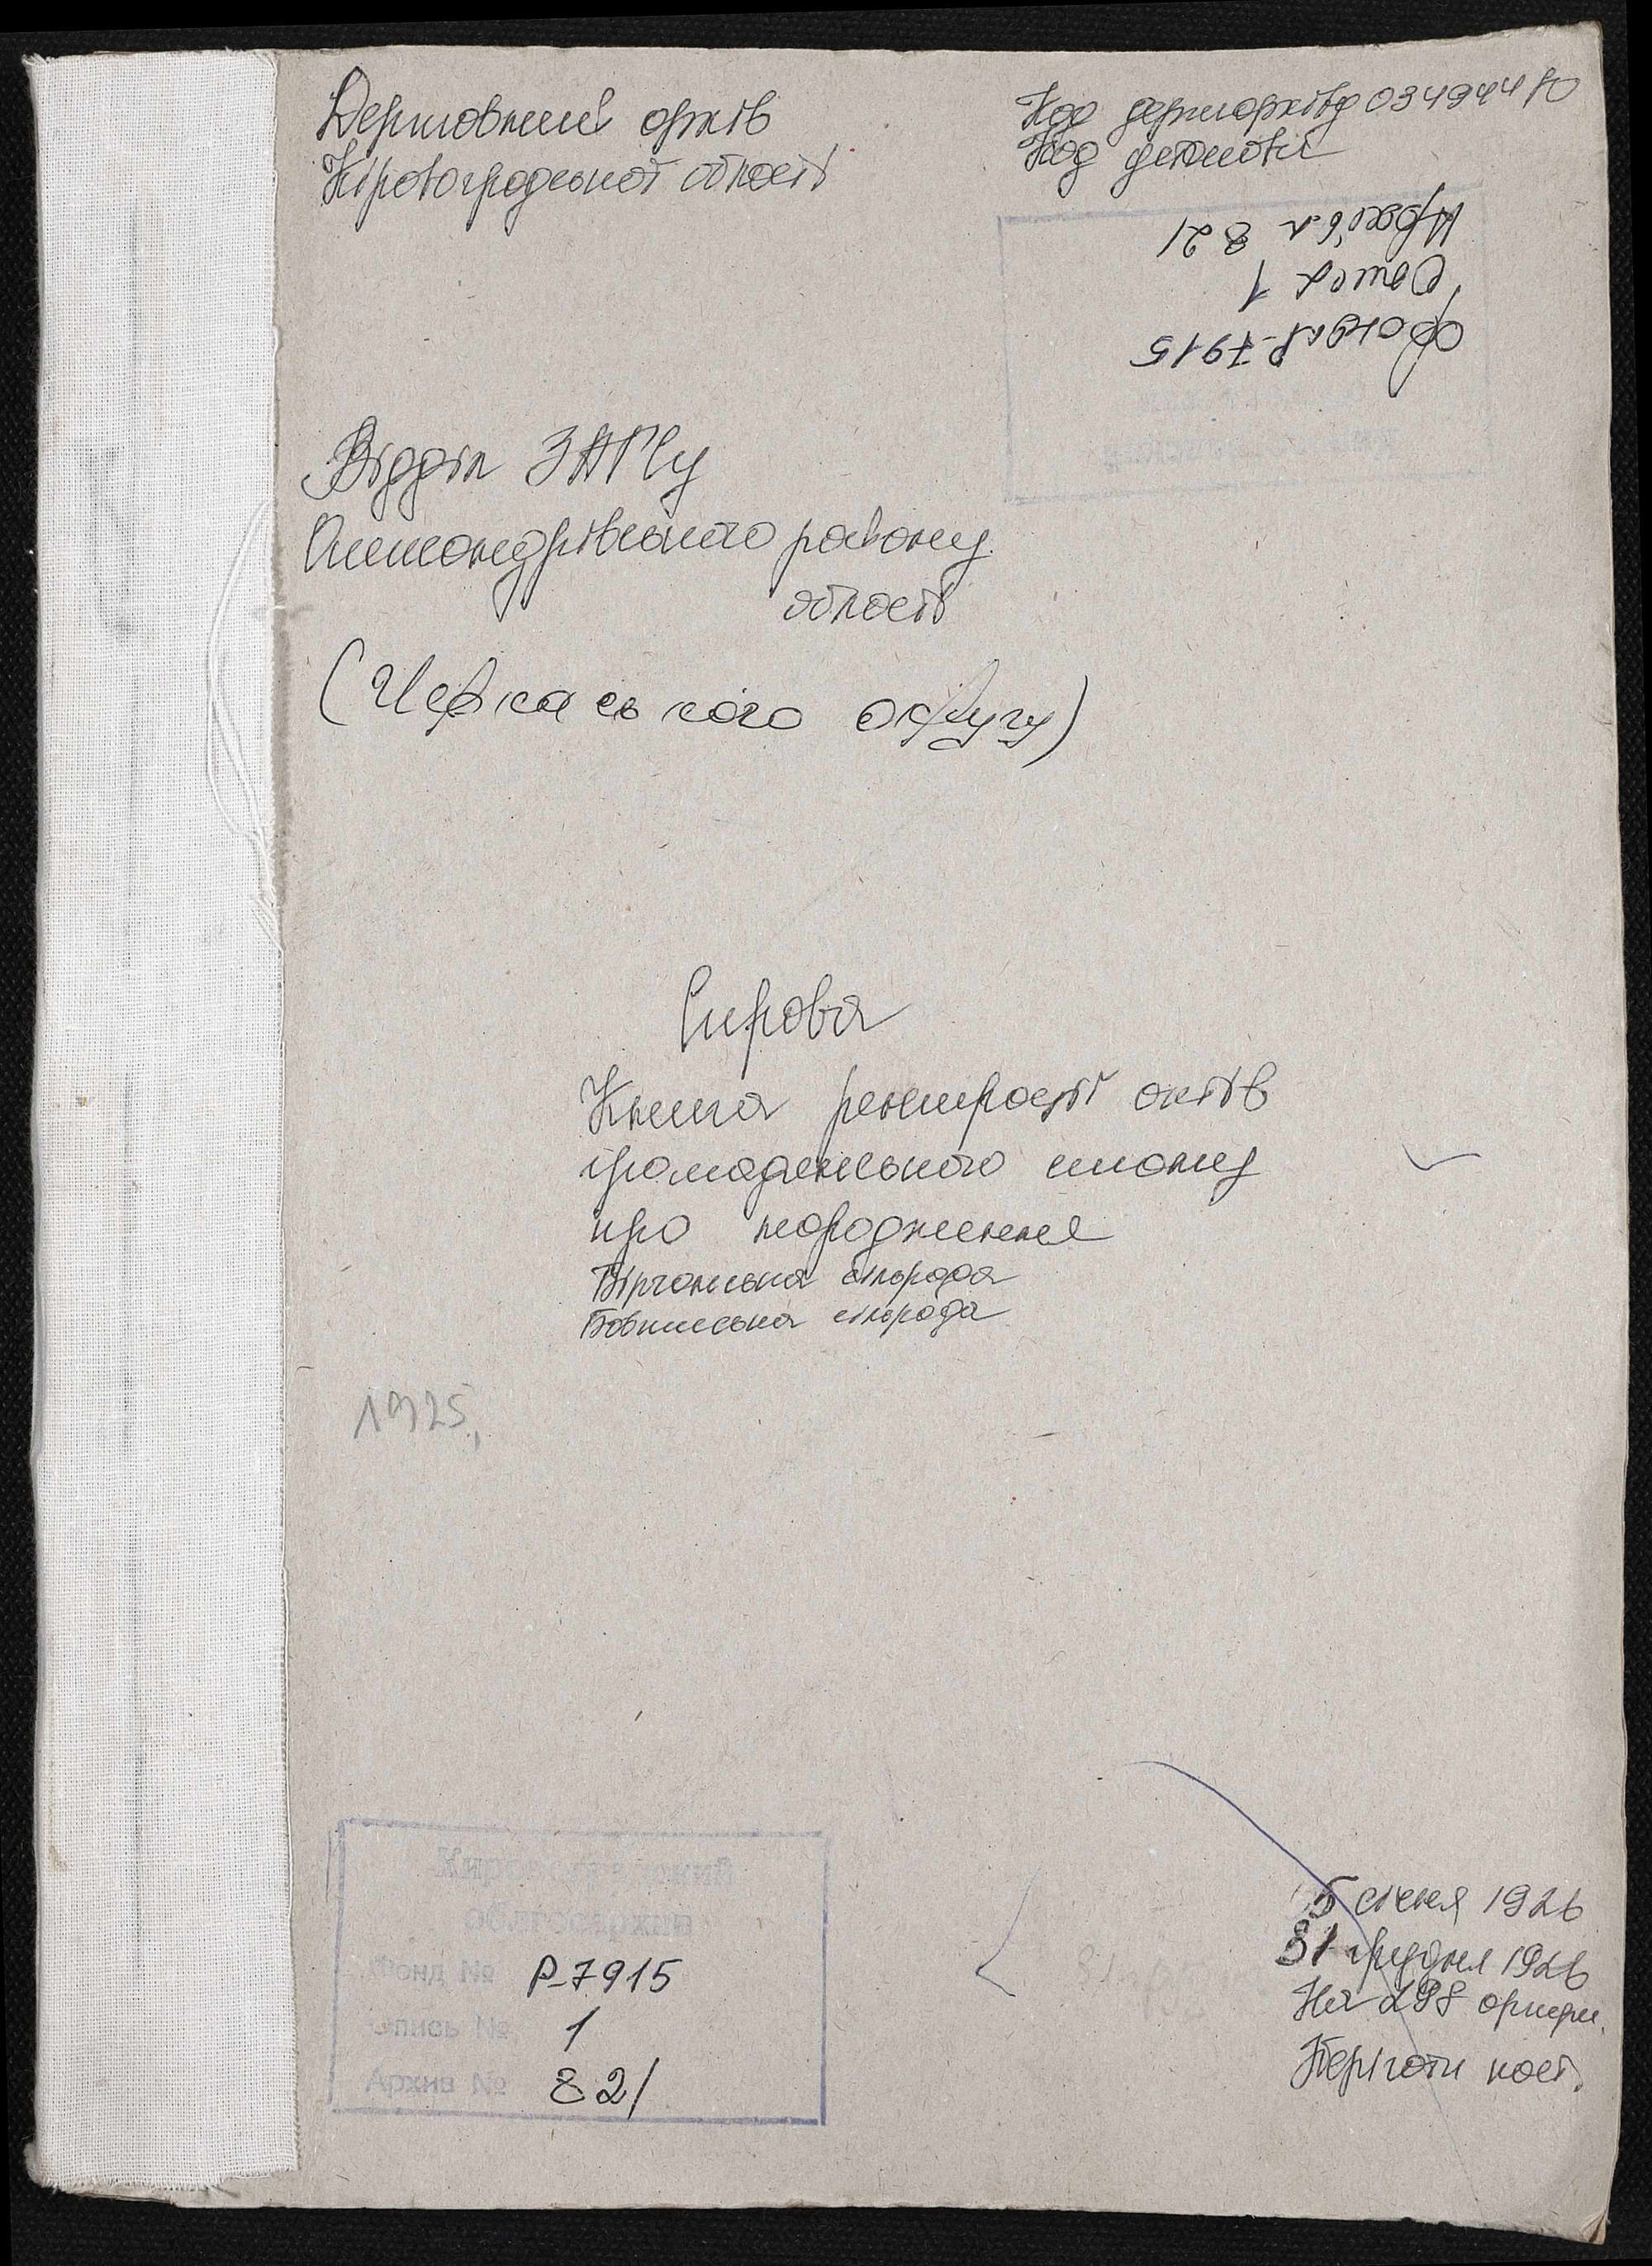 Державний архів
Кіровоградської області
Код держархіву 03494480
Код установи
Фонд Р-7915
Опись 1
Архів. 821
Відділ ЗАГСу
Олександрівського району
області
(Черкаського округу)
Справа
Книга реєстрації актів
громадянського стану
про народження
Вірчанська сільрада
Бовтиська сільрада
1925
Фонд № Р-7915
Опись № 1
Архив № 821
5 січня 1926
31 грудня 1926
На 298 аркуш.
Берігати пост.